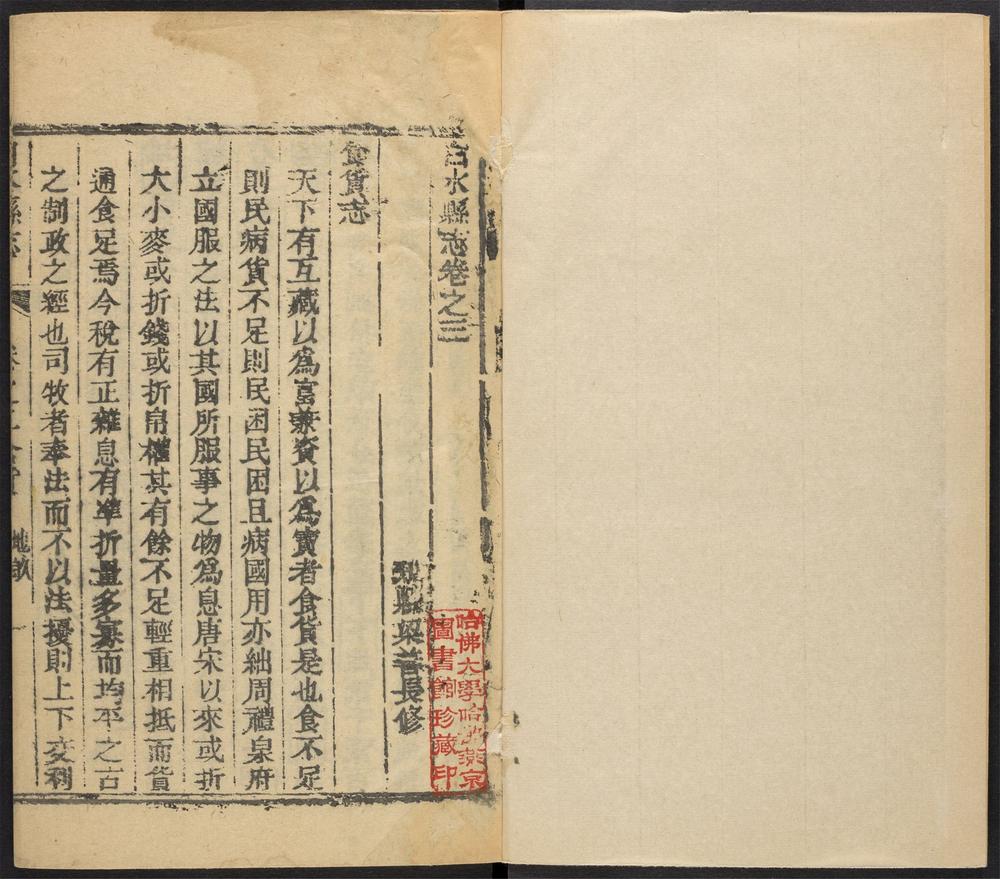 白水縣志卷之三
知縣梁善長修
食貨志
天下有互藏以爲富兼資以爲寶者食貨是也食不足
則民病貨不足則民困民困且病國用亦絀周禮泉府
立國服之法以其國所服事之物爲息唐宋以來或折
大小麥或折錢或折帛權其有餘不足輕重相抵而貨
通食足焉今稅有正雜息有準折量多寡而均平之古
之制政之經也司牧者奉法而不以法擾則上下交利
白水縣志 卷之三食貨 地畝 一
哈佛大學哈佛燕京
圖書館珍藏印